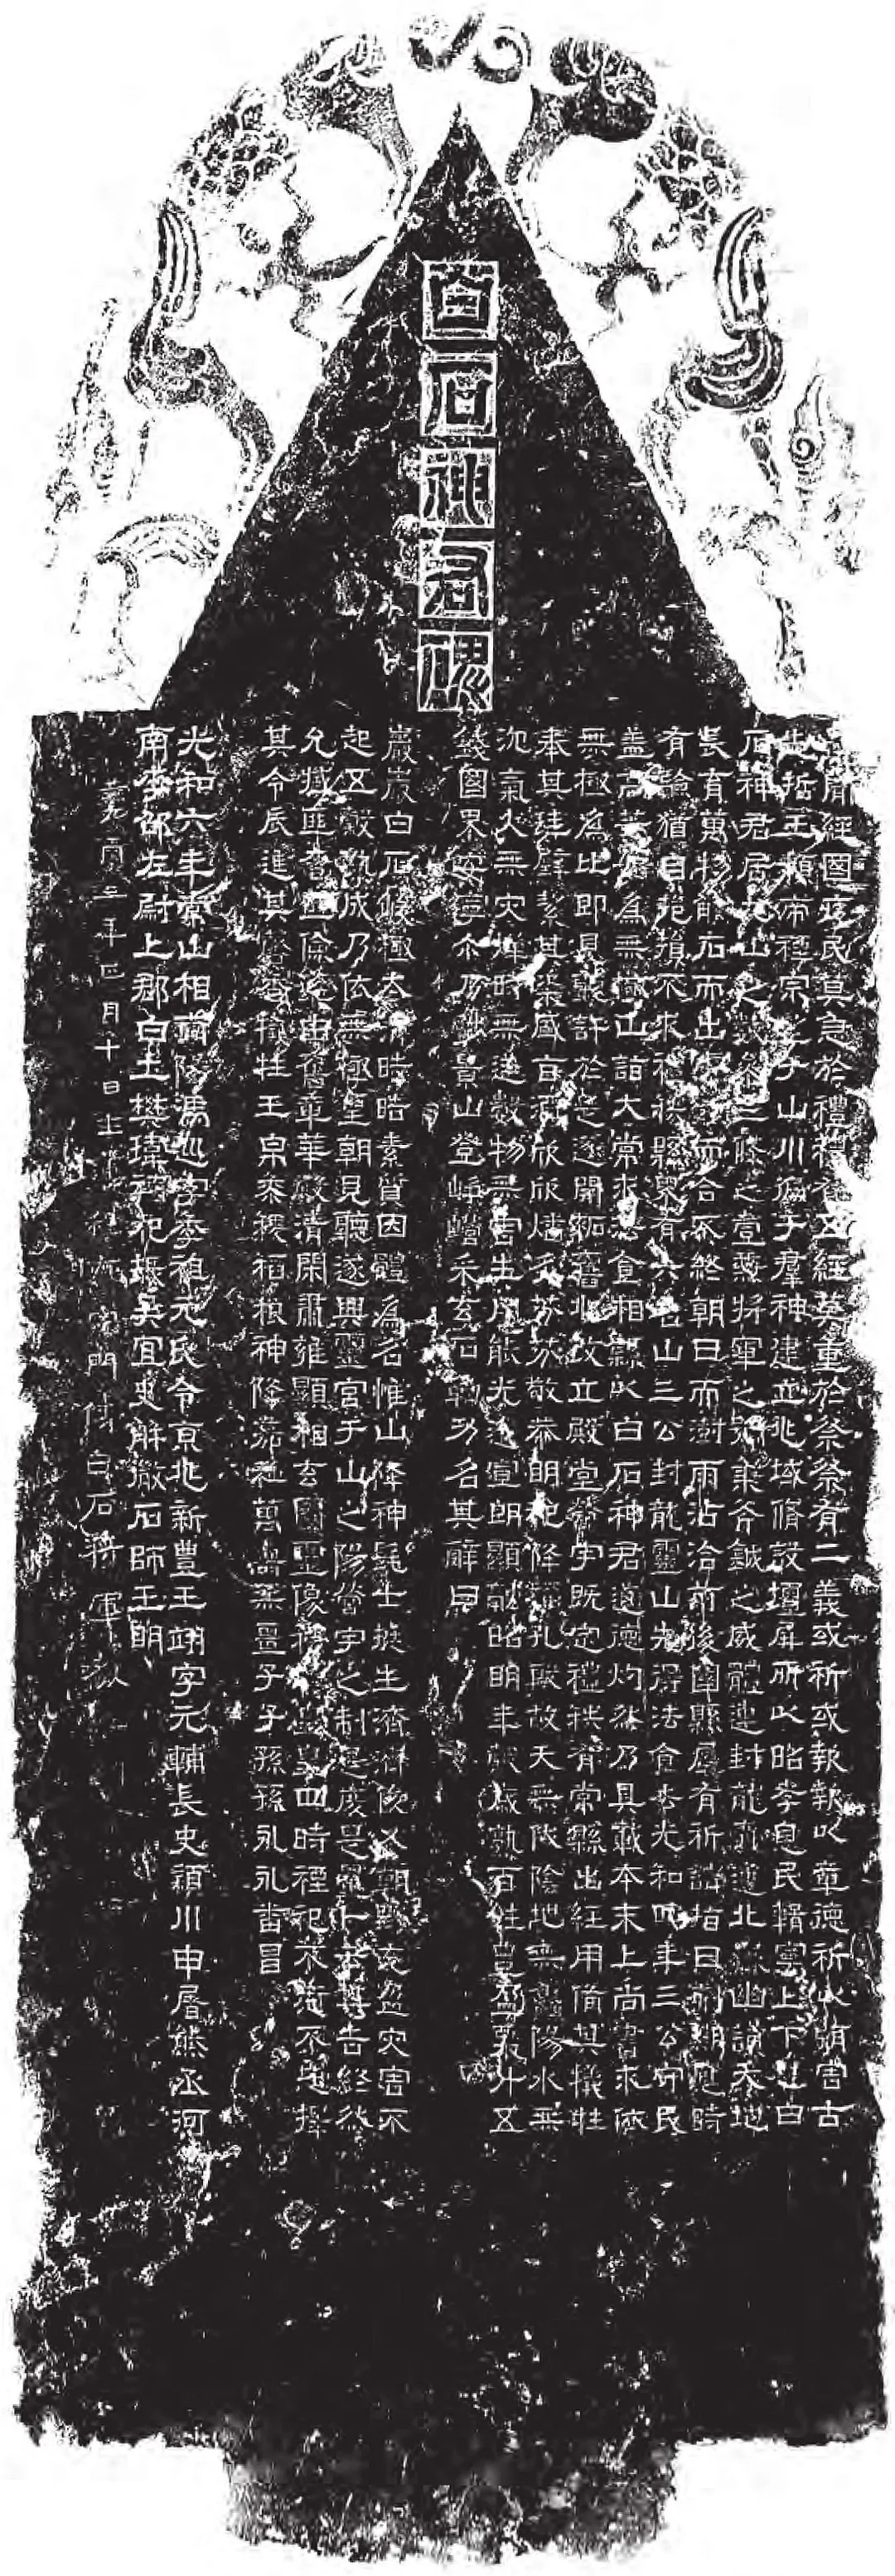 白石神君碑
蓋聞經國序民莫急於禮禮有五經莫重於祭祭有二義或祈或報報以章德祈以弭害古
先哲王類帝禋宗望于山川徧于羣神建立兆域脩設壇屏所以昭孝息民輯寧上下也白
石神君居九山之數參三條之壹兼將軍之號秉斧鉞之威體連封龍氣通北嶽幽讚天地
長育萬物觸石而出膚寸而合不終朝日而澍雨沾洽前後國縣屢有祈請指日刻期應時
有驗猶自挹損不求禮秩縣界有六名山三公封龍靈山先得法食去光和四年三公守民
蓋高等始為無極山詣大常求法食相縣以白石神君道德灼然乃具載本末上尚書求依
無極為比即見聽許於是遂開拓舊兆改立殿堂營宇既定禮秩有常縣出經用備其犧牲
奉其珪璧絜其粢盛旨酒欣欣燔炙芬芬敬恭明祀降福孔殷故天無伏陰地無鮮陽水無
沉氣火無灾燀時無逆數物無害生用能光遠宣朗顯融昭明年穀歲熟百姓豐盈粟升五
錢國界安寧尒乃陟景山登崢嶸采玄石勒功名其辭曰
巖巖白石峻極太清皓皓素質因體為名惟山降神髦士挺生濟濟俊乂朝野充盈灾害不
起五穀熟成乃依無極聖朝見聽遂興靈宮于山之陽營宇之制是度是量卜云其吉終然
允臧匪奢匪儉率由舊章華殿清閑肅雍顯相玄圖靈像穆穆皇皇四時禋祀不愆不忘擇
其令辰進其馨香犧牲玉帛黍稷稻粮神降嘉祉萬壽無畺子子孫孫永永番昌
光和六年常山相南陽馮巡字季祖元氏令京兆新豐王翊字元輔長史潁川申屠熊丞河
南李邵左尉上郡白土樊瑋祠祀掾吳宜史解微石師王明
三年正月十日主簿程家門傳白石將軍教